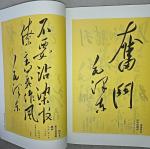 奮鬥
毛澤東
不要沾染官
僚主義作風
毛澤東